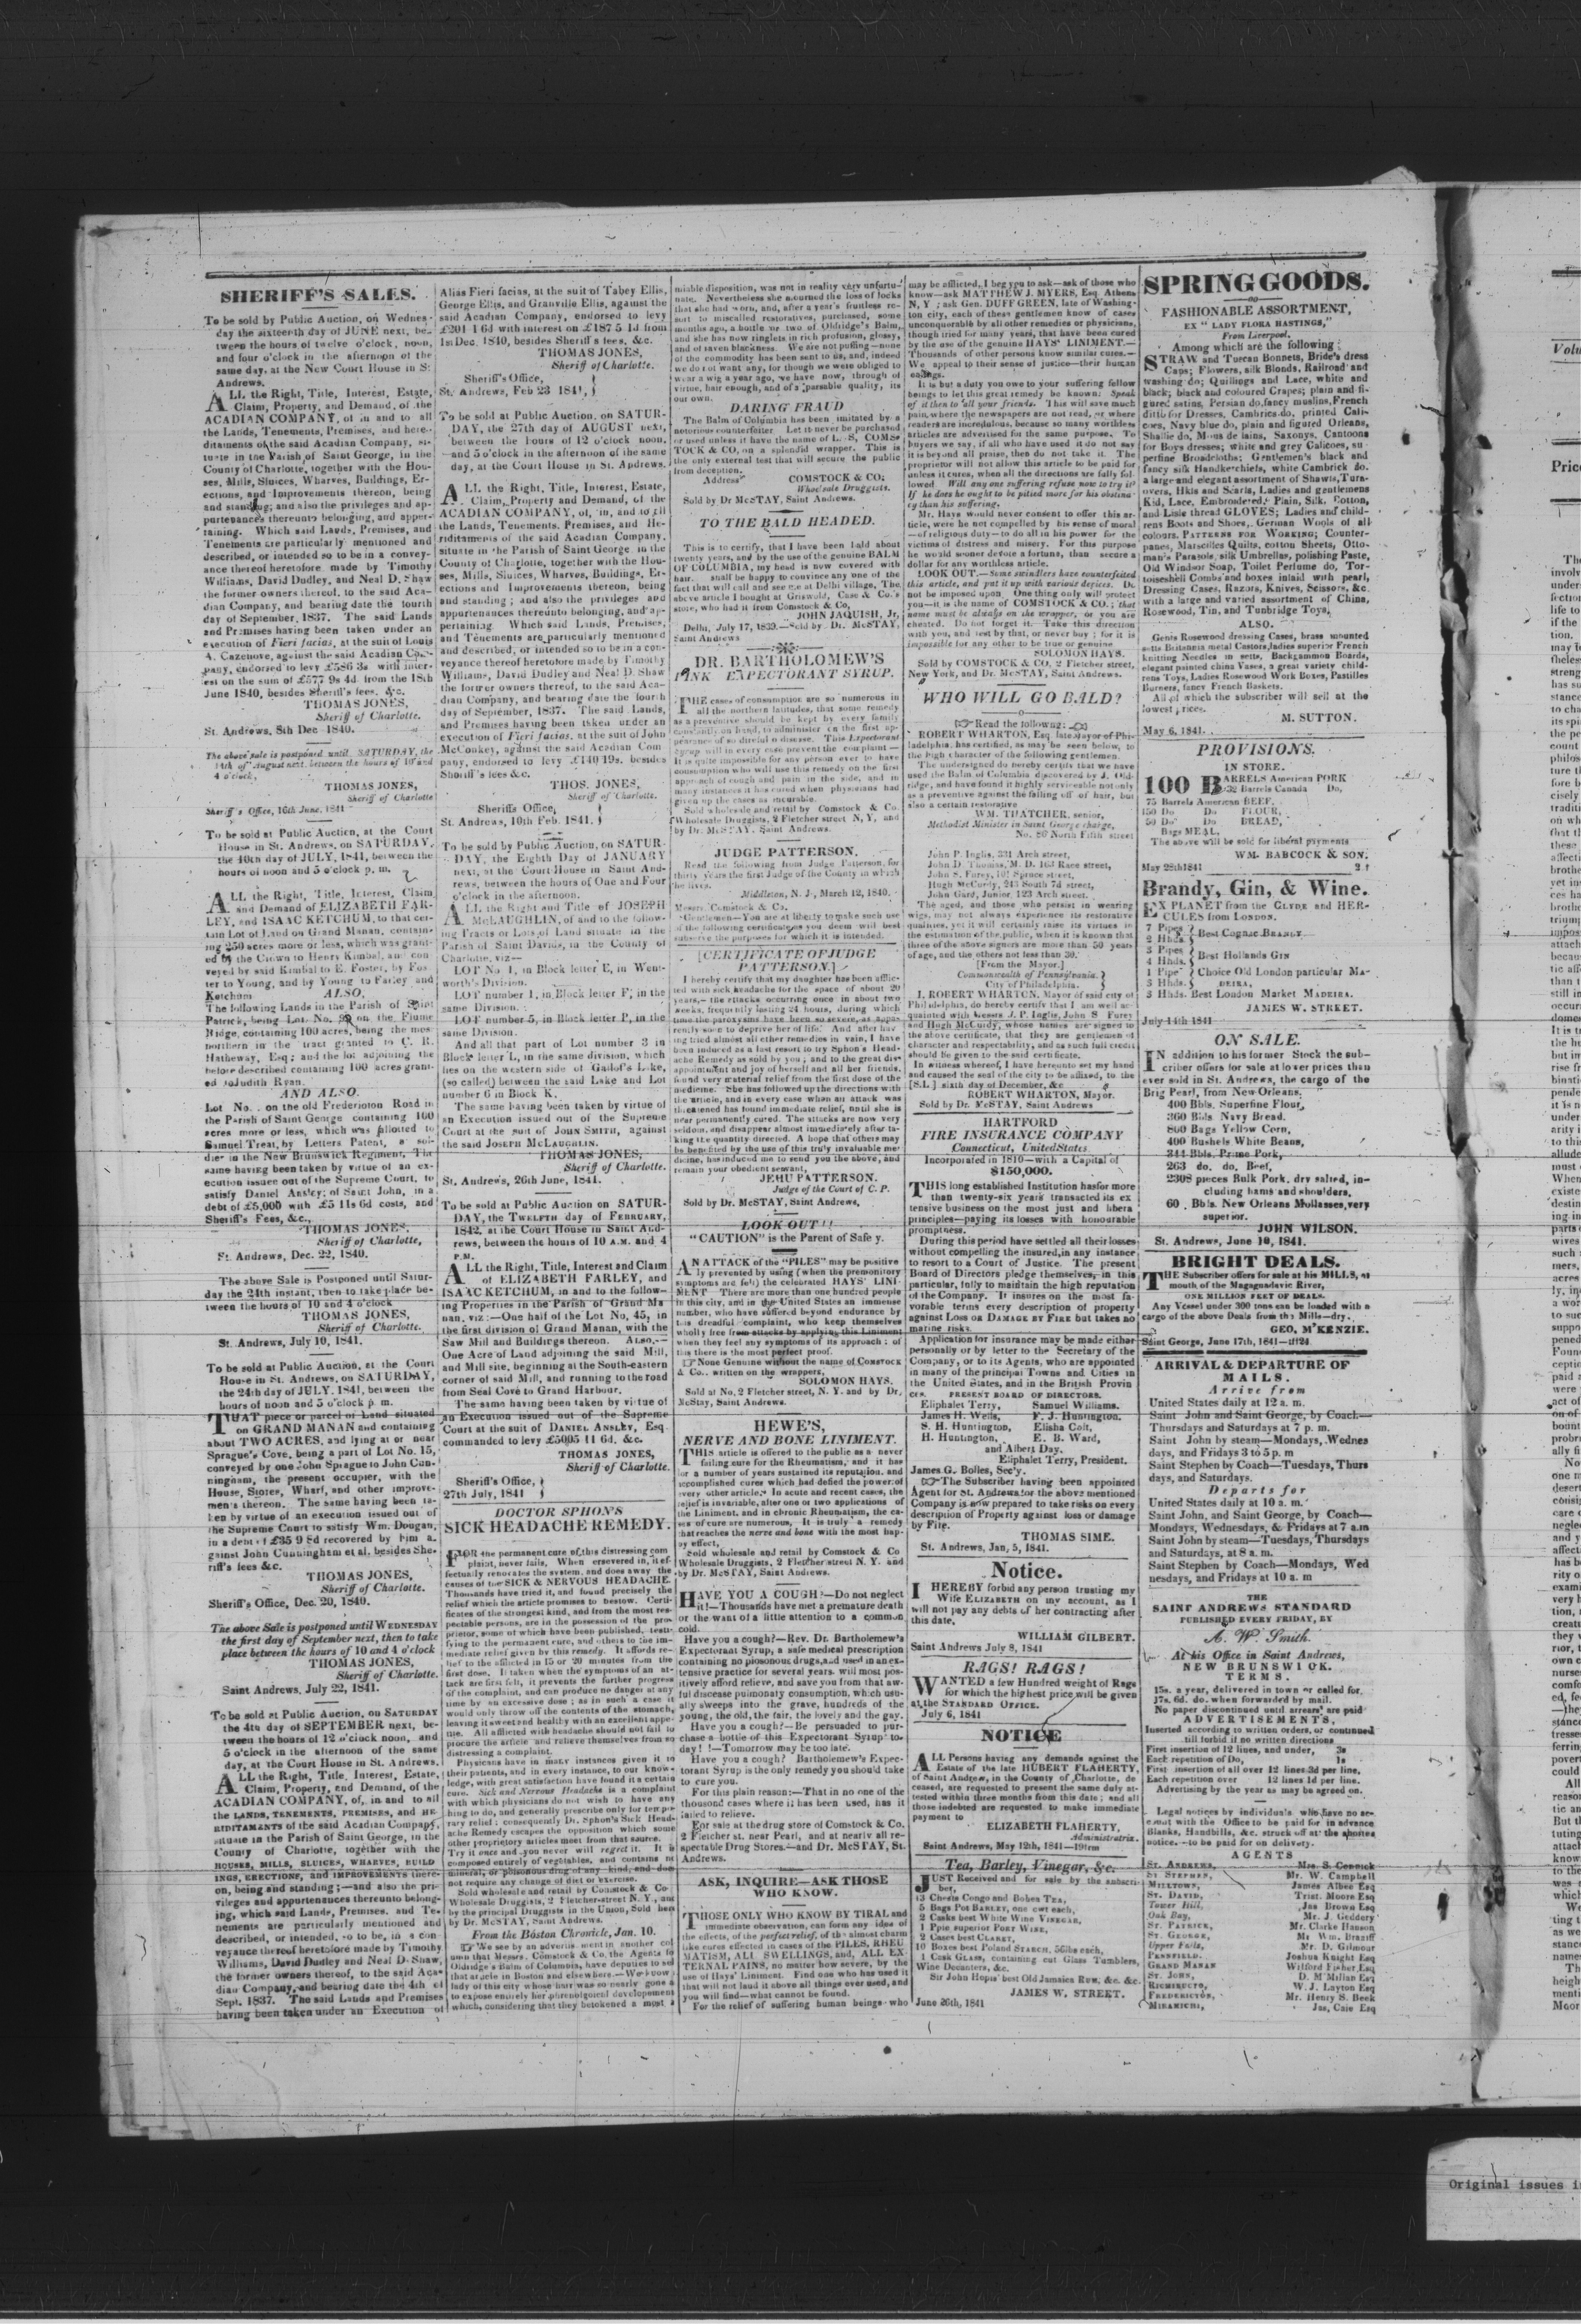 SHERIFF'S SALES.
To be sold by Public Auction, on Wednes-
day the sixteenth day of JUNE next, be-
tween the hours of twelve o'clock, noon,
and four o'clock in the afternoon of the
same day, at the New Court House in St
Andrews.
ALL the Right, Title, Interest, Estate,
Claim, Property, and Demand, of the
ACADIAN COMPANY, of in and to all
the Lands, Tenements, Premises, and here-
ditaments of the said Acadian Company, si-
tuate in the Parish of Saint George, in the
County of Charlotte, together with the Hou-
ses, Mills, Sluices, Wharves, Buildings, Er-
ections, and Improvements thereon, being
and standing; and also the privileges and ap-
purtenances thereunto belonging, and apper-
taining. Which said Lands, Premises, and
Tenements are particularly mentioned and
described, or intended so to be in a convey-
ance thereof heretofore made by Timothy
Williams, David Dudley, and Neal D. Shaw
the former owners thereof, to the said Aca-
dian Company, and bearing date the fourth
day of September, 1837. The said Lands
and Premises having been taken under an
execution of Fieri facias, at the suit of Louis
A. Cazenove, against the said Acadian Com-
pany, endorsed to levy £586 3s with inter-
est on the sum of £577 9s 4d from the 18th
June 1840, besides Sheriff's fees, &c.
THOMAS JONES,
Sheriff of Charlotte.
St. Andrews, 8th Dec 1840.
The above sale is postponed until SATURDAY, the
14th of August next between the hours of 10 and
4 o'clock,
THOMAS JONES,
Sheriff of Charlotte
Sheriff's Office, 16th June. 1841
To be sold at Public Auction, at the Court
House in St. Andrews, on SATURDAY,
the 10th day of JULY, 1841, between the
hours of noon and 5 o'clock p. m.
ALL the Right, Title, Interest, Claim
and Demand of ELIZABETH FAR-
LEY, and ISAAC KETCHUM, to that cer-
tain Lot of Land on Grand Manan, contain-
ing 250 acres more or less, which was grant-
ed by the Crown to Henry Kimbal, and con-
veyed by said Kimbal to E. Foster, by Fos-
ter to Young, and by Young to Farley and
Ketchum ALSO,
The following Lands in the Parish of Saint
Patrick, being Lot No. on the Flume
Ridge, containing 100 acres, being the mos
northern in the tract granted to C. R.
Hatheway, Esq; and the lot adjoining the
before described containing 100 acres grant-
ed to Judith Ryan.
AND ALSO.
Lot No. on the old Fredericton Road in
the Parish of Saint George containing 100
acres more or less, which was allotted to
Samuel Treat, by Letters Patent, a sol-
dier in the New Brunswick Regiment, The
same having been taken by virtue of an ex-
ecution issued out of the Supreme Court, to
satisfy Daniel Ansley; of Saint John, in a
debt of £5,000 with £5 11s 6d costs, and
Sheriff's Fees, &c.,
THOMAS JONES,
Sheriff of Charlotte,
St. Andrews, Dec. 22, 1840.
The above Sale is Postponed until Satur-
day the 24th instant, then to take place be-
tween the hours of 10 and 4 o'clock
THOMAS JONES,
Sheriff of Charlotte.
St. Andrews, July 10, 1841.
To be sold at Public Auction, at the Court
House in St. Andrews, on SATURDAY,
the 24th day of JULY, 1841, between the
hours of noon and 5 o'clock p. m.
THAT piece or parcel of Land situated
on GRAND MANAN and containing
about TWO ACRES, and lying at or near
Sprague's Cove, being a part of Lot No. 15,
conveyed by one John Sprague to John Cun-
ningham, the present occupier, with the
House, Stores, Wharf, and other improve-
ments thereon. The same having been ta-
ken by virtue of an execution issued out of
the Supreme Court to satisfy Wm. Dougan,
in a debt of £35 9 8d recovered by him a-
gainst John Cunningham et al. besides She-
riff's fees &c.
THOMAS JONES,
Sheriff of Charlotte.
Sheriff's Office, Dec. 20, 1840.
The above Sale is postponed until WEDNESDAY
the first day of September next, then to take
place between the hours of 10 and 4 o'clock
THOMAS JONES,
Sheriff of Charlotte.
Saint Andrews, July 22, 1841.
To be sold at Public Auction, on SATURDAY
the 4th day of SEPTEMBER next, be-
tween the hours of 12 o'clock noon, and
5 o'clock in the afternoon of the same
day, at the Court House in St. Andrews.
ALL the Right, Title, Interest, Estate,
Claim, Property, and Demand, of the
ACADIAN COMPANY, of, in and to all
the LANDS, TENEMENTS, PREMISES, and HE-
RIDITAMENTS of the said Acadian Company,
situate in the Parish of Saint George, in the
County of Charlotte, together with the
HOUSES, MILLS, SLUICES, WHARVES, BUILD
INGS, ERECTIONS, and IMPROVEMENTS there-
on, being and standing;—and also the pri-
vileges and appurtenances thereunto belong-
ing, which said Lands, Premises, and Te-
nements are particularly mentioned and
described, or intended, so to be, in a con
veyance thereof heretofore made by Timothy
Williams, David Dudley and Neal D. Shaw,
the former owners thereof, to the said Aca-
dian Company, and bearing date the 4th of
Sept. 1837. The said Lands and Premises
having been taken under an Execution of
Alias Fieri facias, at the suit of Tabey Ellis,
George Ellis, and Granville Ellis, against the
said Acadian Company, endorsed to levy
£201 1 6d with interest on £187 5 1d from
1st Dec. 1840, besides Sheriff's fees, &c.
THOMAS JONES,
Sheriff of Charlotte.
Sheriff's Office,
St. Andrews, Feb 23 1841,
To be sold at Public Auction, on SATUR-
DAY, the 27th day of AUGUST next,
between the hours of 12 o'clock noon,
and 5 o'clock in the afternoon of the same
day, at the Court House in St. Andrews.
ALL the Right, Title, Interest, Estate,
Claim, Property and Demand, of the
ACADIAN COMPANY, of, in, and to all
the Lands, Tenements, Premises, and He-
riditaments of the said Acadian Company,
situate in the Parish of Saint George in the
County of Charlotte, together with the Hou-
ses, Mills, Sluices, Wharves, Buildings, Er-
ections and Improvements thereon, being
and standing; and also the privileges and
appurtenances thereunto belonging, and ap-
pertaining. Which said Lands, Premises,
and Tenements are particularly mentioned
and described, or intended so to be in a con-
veyance thereof heretofore made by Timothy
Williams, David Dudley and Neal D. Shaw
the former owners thereof, to the said Aca-
dian Company, and bearing date the fourth
day of September, 1837. The said Lands,
and Premises having been taken under an
execution of Fieri facias, at the suit of John
McConkey, against the said Acadian Com
pany, endorsed to levy £140 19s. besides
Sheriff's fees &c.
THOS. JONES,
Sheriff of Charlotte.
Sheriffs Office,
St. Andrews, 10th Feb. 1841.
To be sold by Public Auction, on SATUR-
DAY, the Eighth Day of JANUARY
next, at the Court House in Saint And-
rews, between the hours of One and Four
o'clock in the afternoon.
ALL the Right and Title of JOSEPH
McLAUGHLIN, of and to the follow-
ing Tracts or Lots of Land situate in the
Parish of Saint Davids, in the County of
Charlotte, viz—
LOT No 1, in Block letter E, in Went-
worth's Division.
LOT number 1, in Block letter F, in the
same Division.
LOT number 5, in Block letter P, in the
same Division.
And all that part of Lot number 3 in
Block letter L, in the same division, which
lies on the western side of Gallof's Lake,
(so called) between the said Lake and Lot
number 6 in Block K.
The same having been taken by virtue of
an Execution issued out of the Supreme
Court at the suit of JOHN SMITH, against
the said JOSEPH McLAUGHLIN.
THOMAS JONES,
Sheriff of Charlotte.
St. Andrews, 26th June, 1841.
To be sold at Public Auction on SATUR-
DAY, the TWELFTH day of FEBRUARY,
1842, at the Court House in Saint And-
rews, between the hours of 10 A.M. and 4
P.M.
ALL the Right, Title, Interest and Claim
of ELIZABETH FARLEY, and
ISAAC KETCHUM, in and to the follow-
ing Properties in the Parish of Grand Ma
nan, viz:—One half of the Lot No, 45, in
the first division of Grand Manan, with the
Saw Mill and Buildings thereon. ALSO,—
One Acre of Land adjoining the said Mill,
and Mill site, beginning at the South-eastern
corner of said Mill, and running to the road
from Seal Cove to Grand Harbour.
The same having been taken by virtue of
an Execution issued out of the Supreme
Court at the suit of DANIEL ANSLEY, Esq
commanded to levy £5005 11 6d, &c.
THOMAS JONES,
Sheriff of Charlotte.
Sheriff's Office,
27th July, 1841
DOCTOR SPHON'S
SICK HEADACHE REMEDY.
FOR the permanent cure of this distressing com
plaint, never fails. When ersevered in, it ef-
fectually renovates the system, and does away the
causes of the SICK & NERVOUS HEADACHE.
Thousands have tried it, and found precisely the
relief which the article promises to bestow. Certi-
ficates of the strongest kind, and from the most res-
pectable persons, are in the possession of the pro-
prietor, some of which have been published, testi-
fying to the permanent cure, and others to the im-
mediate relief given by this remedy. It affords re-
lief to the afflicted in 15 or 20 minutes from the
first dose. If taken when the symptoms of an at-
tack are first felt, it prevents the further progress
of the complaint, and can produce no danger at any
time by an excessive dose; as in such a case it
would only throw off the contents of the stomach,
leaving it sweet and healthy with an excellent appe-
tite. All afflicted with headache should not fail to
procure the article and relieve themselves from so
distressing a complaint.
Physicians have in many instances given it to
their patients, and in every instance, to our know-
ledge, with great satisfaction have found it a certain
cure. Sick and Nervous Headache is a complaint
with which physicians do not wish to have any
thing to do, and generally prescribe only for tempo-
rary relief: consequently Dr. Sphon's Sick Head-
ache Remedy escapes the opposition which some
other proprietory articles meet from that source.
Try it once and you never will regret it. It is
composed entirely of vegetables, and contains no
mineral, or poisonous drug of any kind, and does
not require any change of diet or exercise.
Sold wholesale and retail by Comstock & Co
Wholesale Druggists, 2 Fletcher-street N.Y., and
by the principal Druggists in the Union, Sold here
by Dr. McSTAY, Saint Andrews.
From the Boston Chronicle, Jan. 10.
We see by an advertisement in another col
umn that Messrs. Comstock & Co, the Agents for
Oldridge's Balm of Columbia, have deputies to sell
that article in Boston and elsewhere.—We know a
lady of this city whose hair was so nearly gone as
to expose entirely her phrenological developements
which, considering that they betokened a most a
miable disposition, was not in reality very unfortu-
nate. Nevertheless she mourned the loss of locks
that she had worn, and, after a year's fruitless re-
sort to miscalled restoratives, purchased, some
months ago, a bottle or two of Oldridge's Balm,
and she has now ringlets in rich profusion, glossy,
and of raven blackness. We are not puffing—none
of the commodity has been sent to us, and, indeed
we do not want any, for though we were obliged to
wear a wig a year ago, we have now, through of
virtue, hair enough, and of a passable quality, its
our own.
DARING FRAUD
The Balm of Columbia has been imitated by a
notorious counterfeiter. Let it never be purchased
or used unless it have the name of L. S, COMS
TOCK & CO, on a splendid wrapper. This is
the only external test that will secure the public
from deception.
Address COMSTOCK & CO;
Wholesale Druggists.
Sold by Dr McSTAY, Saint Andrews.
TO THE BALD HEADED.
This is to certify, that I have been bald about
twenty years, and by the use of the genuine BALM
OF COLUMBIA, my head is now covered with
hair. shall be happy to convince any one of the
fact that will call and see me at Delhi village. The
above article I bought at Griswold, Case & Co.'s
store, who had it from Comstock & Co,
JOHN JAQUISH, Jr.
Delhi, July 17, 1839.—Sold by Dr. McSTAY,
Saint Andrews
DR. BARTHOLOMEW'S
PINK EXPECTORANT SYRUP.
THE cases of consumption are so numerous in
all the northern latitudes, that some remedy
as a preventive should be kept by every family
constantly on hand, to administer on the first ap-
pearance of so direful a disease. This Expectorant
Syrup will in every case prevent the complaint—
It is quite impossible for any person ever to have
consumption who will use this remedy on the first
approach of cough and pain in the side, and in
many instances it has cured when physicians had
given up the cases as incurable.
Sold wholesale and retail by Comstock & Co.
Wholesale Druggists, 2 Fletcher street N.Y, and
by Dr. McSTAY, Saint Andrews.
JUDGE PATTERSON.
Read the following from Judge Patterson, for
thirty years the first Judge of the County in which
he lives.
Middleton, N. J., March 12, 1840.
Messrs. Comstock & Co,
Gentlemen—You are at liberty to make such use
of the following certificate as you deem will best
subserve the purposes for which it is intended.
[CERTIFICATE OF JUDGE
PATTERSON.]
I hereby certify that my daughter has been afflic-
ted with sick headache for the space of about 20
years,—the attacks occurring once in about two
weeks, frequently lasting 24 hours, during which
time the paroxysms have been so severe, as appa-
rently soon to deprive her of life. And after hav
ing tried almost all other remedies in vain, I have
been induced as a last resort to try Sphon's Head-
ache Remedy as sold by you; and to the great dis-
appointment and joy of herself and all her friends,
found very material relief from the first dose of the
medicine. She has followed up the directions with
the article, and in every case when an attack was
threatened has found immediate relief, until she is
near permanently cured. The attacks are now very
seldom, and disappear almost immediately after ta-
king the quantity directed. A hope that others may
be benefited by the use of this truly invaluable me-
dicine, has induced me to send you the above, and
remain your obedient servant,
JEHU PATTERSON.
Judge of the Court of C. P.
Sold by Dr. McSTAY, Saint Andrews,
LOOK OUT!!
"CAUTION" is the Parent of Safe y.
AN ATTACK of the "PILES" may be positive
ly prevented by using (when the premonitory
symptoms are felt) the celebrated HAYS' LINI-
MENT There are more than one hundred people
in this city, and in the United States an immense
number, who have suffered beyond endurance by
this dreadful complaint, who keep themselves
wholly free from attacks by applying this Liniment
when they feel any symptoms of its approach; of
this there is the most perfect proof.
None Genuine without the name of COMSTOCK
& Co., written on the wrappers,
SOLOMON HAYS.
Sold at No. 2 Fletcher street, N. Y. and by Dr,
McStay, Saint Andrews.
HEWE'S,
NERVE AND BONE LINIMENT.
THIS article is offered to the public as a never
failing cure for the Rheumatism, and it has
for a number of years sustained its reputation, and
accomplished cures which had defied the power of
every other article. In acute and recent cases, the
relief is invariable, after one or two applications of
the Liniment, and in chronic Rheumatism, the ca-
ses of cure are numerous. It is truly a remedy
that reaches the nerve and bone with the most hap-
py effect,
Sold wholesale and retail by Comstock & Co
Wholesale Druggists, 2 Fletcher street N. Y. and
by Dr. McSTAY, Saint Andrews.
HAVE YOU A COUGH?—Do not neglect
it!—Thousands have met a premature death
or the want of a little attention to a common
cold.
Have you a cough?—Rev. Dr. Bartholemew's
Expectorant Syrup, a safe medical prescription
containing no poisonous drugs, and used in an ex-
tensive practice for several years, will most pos-
itively afford relieve, and save you from that aw-
ful disease pulmonary consumption, which usu-
ally sweeps into the grave, hundreds of the
young, the old, the fair, the lovely and the gay.
Have you a cough?—Be persuaded to pur-
chase a bottle of this Expectorant Syrup to-
day!!—Tomorrow may be too late.
Have you a cough? Bartholemew's Expec-
torant Syrup is the only remedy you should take
to cure you.
For this plain reason:—That in no one of the
thousand cases where it has been used, has it
failed to relieve.
For sale at the drug store of Comstock & Co.
2 Fletcher st. near Pearl, and at nearly all re-
spectable Drug Stores.—and Dr. McSTAY, St.
Andrews.
ASK, INQUIRE—ASK THOSE
WHO KNOW.
THOSE ONLY WHO KNOW BY TIRAL and
immediate observation, can form any idea of
the effects, of the perfect relief, of the almost charm
like cures effected in cases of the PILES, RHEU
MATISM, ALL SWELLINGS, and, ALL EX-
TERNAL PAINS, no matter how severe, by the
use of Hays' Liniment. Find one who has used it
that will not laud it above all things ever used, and
you will find—what cannot be found.
For the relief of suffering human beings who
may be afflicted, I beg you to ask—ask of those who
know—ask MATTHEW J. MYERS, Esq. Athens
N, Y; ask Gen. DUFF GREEN, late of Washing-
ton city, each of these gentlemen know of cases
unconquerable by all other remedies or physicians,
though tried for many years, that have been cured
by the use of the genuine HAYS' LINIMENT.—
Thousands of other persons know similar cures.—
We appeal to their sense of justice—their human
eelings.
It is but a duty you owe to your suffering fellow
beings to let this great remedy be known. Speak
of it then to all your friends. This will save much
pain, where the newspapers are not read, or where
readers are incredulous, because so many worthless
articles are advertised for the same purpose. To
buyers we say, if all who have used it do not say
it is beyond all praise, then do not take it. The
proprietor will not allow this article to be paid for
unless it cures, when all the directions are fully fol-
lowed Will any one suffering refuse now to try it?
If he does he ought to be pitied more for his obstina-
cy than his suffering.
Mr. Hays would never consent to offer this ar-
ticle, were he not compelled by his sense of moral
—of religious duty—to do all in his power for the
victims of distress and misery. For this purpose
he would sooner devote a fortune, than secure a
dollar for any worthless article.
LOOK OUT.—Some swindlers have counterfeited
this article, and put it up with various devices. Do
not be imposed upon One thing only will protect
you—it is the name of COMSTOCK & CO.; that
name must be always on the wrapper, or you are
cheated. Do not forget it. Take this direction
with you, and test by that, or never buy; for it is
impossible for any other to be true or genuine
SOLOMON HAYS.
Sold by COMSTOCK & CO, 2 Fletcher street,
New York, and Dr. McSTAY, Saint Andrews.
WHO WILL GO BALD?
Read the following:
ROBERT WHARTON, Esq late Mayor of Phi-
ladelphia, has certified, as may be seen below, to
the high character of the following gentlemen.
The undersigned do hereby certify that we have
used the Balm of Columbia discovered by J. Old-
ridge, and have found it highly serviceable not only
as a preventive against the falling off of hair, but
also a certain restorative
WM. THATCHER, senior,
Methodist Minister in Saint George charge,
No. 86 North Fifth street
John P. Inglis, 331 Arch street,
John D Thomas, M. D. 163 Race street,
John S. Furey, 101 Spruce street,
Hugh McCurdy, 243 South 7d street,
John Gard, Junior, 123 Arch street.
The aged, and those who persist in wearing
wigs, may not always experience its restorative
qualities, yet it will certainly raise its virtues in
the estimation of the public, when it is known that
three of the above signers are more than 50 years
of age, and the others not less than 30.
[From the Mayor.]
Commonwealth of Pennsylvania.
City of Philadelphia.
I, ROBERT WHARTON, Mayor of said city of
Philadelphia, do hereby certify that I am well ac-
quainted with Messrs J. P. Inglis, John S Furey
and Hugh McCurdy, whose names are signed to
the above certificate, that they are gentlemen of
character and respectability, and as such full credit
should be given to the said certificate.
In witness whereof, I have hereunto set my hand
and caused the seal of the city to be affixed, to the
[S.L.] sixth day of December, &c
ROBERT WHARTON, Mayor.
Sold by Dr. McSTAY, Saint Andrews
HARTFORD
FIRE INSURANCE COMPANY
Connecticut, United States
Incorporated in 1810—with a Capital of
$150,000.
THIS long established Institution has for more
than twenty-six years transacted its ex
tensive business on the most just and libera
principles—paying its losses with honourable
promptness.
During this period have settled all their losses
without compelling the insured, in any instance
to resort to a Court of Justice. The present
Board of Directors pledge themselves, in this
particular, fully to maintain the high reputation
of the Company. It insures on the most fa-
vorable terms every description of property
against Loss or DAMAGE BY FIRE but takes no
marine risks.
Application for insurance may be made either
personally or by letter to the Secretary of the
Company, or to its Agents, who are appointed
in many of the principal Towns and Cities in
the United States, and in the British Provin
ces. PRESENT BOARD OF DIRECTORS.
Eliphalet Terry, Samuel Williams.
James H. Wells, F. J. Huntington.
S. H. Huntington, Elisha Colt,
H. Huntington, E. B. Ward,
and Albert Day.
Eliphalet Terry, President.
James G. Bolles, Sec'y.
The Subscriber having been appointed
Agent for St. Andrews for the above mentioned
Company is now prepared to take risks on every
description of Property against loss or damage
by Fire.
THOMAS SIME.
St. Andrews, Jan, 5, 1841.
Notice.
I HEREBY forbid any person trusting my
Wife ELIZABETH on my account, as I
will not pay any debts of her contracting after
this date,
WILLIAM GILBERT.
Saint Andrews July 8, 1841
RAGS! RAGS!
WANTED a few Hundred weight of Rags
for which the highest price will be given
at the STANDARD OFFICE.
July 6, 1841
NOTICE
ALL Persons having any demands against the
Estate of the late HUBERT FLAHERTY,
of Saint Andrew, in the County of Charlotte, de
ceased, are requested to present the same duly at-
tested within three months from this date; and all
those indebted are requested to make immediate
payment to
ELIZABETH FLAHERTY,
Administratrix.
Saint Andrews, May 12th, 1841—19trm
Tea, Barley, Vinegar, &c.
JUST Received and for sale by the subscri-
ber,
13 Chests Congo and Bohea TEA,
5 Bags Pot BARLEY, one cwt each,
2 Casks best White Wine VINEGAR,
1 Ppie superior PORT WINE,
2 Cases best CLARET,
10 Boxes best Poland STARCH, 56lbs each,
1 Cask GLASS, containing cut Glass Tumblers,
Wine Decanters, &c.
Sir John Hopis' best Old Jamaica RUM, &c. &c.
JAMES W. STREET.
June 26th, 1841
SPRING GOODS.
FASHIONABLE ASSORTMENT,
EX "LADY FLORA HASTINGS,"
From Liverpool.
Among which are the following:
STRAW and Tuscan Bonnets, Bride's dress
Caps; Flowers, silk Blonds, Railroad and
washing do; Quillings and Lace, white and
black; black and coloured Crapes; plain and fi-
gured satins, Persian do, fancy muslins, French
ditto for Dresses, Cambrics do, printed Cali-
coes, Navy blue do, plain and figured Orleans,
Shallie do, Mous de lains, Saxonys, Cantoons
for Boys dresses; white and grey Calicoes, su-
perfine Broadcloths; Gentlemen's black and
fancy silk Handkerchiefs, white Cambrick do.
a large and elegant assortment of Shawls, Turn-
overs, Hkfs and Scarfs, Ladies and gentlemens
Kid, Lace, Embroidered, Plain, Silk, Cotton,
and Lisle thread GLOVES; Ladies and child-
rens Boots and Shoes, German Wools of all
colours, PATTERNS FOR WORKING; Counter-
panes, Marseilles Quilts, cotton Sheets, Otto-
man's Parasols, silk Umbrellas, polishing Paste,
Old Windsor Soap, Toilet Perfume do, Tor-
toiseshell Combs and boxes inlaid with pearl,
Dressing Cases, Razors, Knives, Scissors, &c.
with a large and varied assortment of China,
Rosewood, Tin, and Tunbridge Toys,
ALSO.
Gents Rosewood dressing Cases, brass mounted
setts Britannia metal Castors, ladies superior French
knitting Needles in setts, Backgammon Boards,
elegant painted china Vases, a great variety child-
rens Toys, Ladies Rosewood Work Boxes, Pastilles
Burners, fancy French Baskets.
All of which the subscriber will sell at the
lowest prices.
M. SUTTON.
May 6, 1841.
PROVISIONS.
IN STORE.
100 BARRELS American PORK
32 Barrels Canada Do,
75 Barrels American BEEF,
150 Do Do FLOUR,
50 Do Do BREAD,
Bags MEAL,
The above will be sold for liberal payments
WM. BABCOCK & SON.
May 28th 1841 2 t
Brandy, Gin, & Wine.
EX PLANET from the CLYDE and HER-
CULES from LONDON.
7 Pipes
2 Hhds. Best Cognac BRANDY
3 Pipes
4 Hhds. Best Hollands GIN
1 Pipe Choice Old London particular MA-
3 Hhds. DEIRA,
3 Hhds. Best London Market MADEIRA.
JAMES W. STREET.
July 14th 1841
ON SALE.
IN addition to his former Stock the sub-
criber offers for sale at lower prices than
ever sold in St. Andrews, the cargo of the
Brig Pearl, from New Orleans.
400 Bbls. Superfine Flour,
360 Bbls Navy Bread.
800 Bags Yellow Corn,
400 Bushels White Beans,
344 Bbls. Prime Pork,
263 do. do. Beef,
2308 pieces Bulk Pork, dry salted, in-
cluding hams and shoulders,
60 Bbls. New Orleans Mollasses, very
superior.
JOHN WILSON.
St. Andrews, June 10, 1841.
BRIGHT DEALS.
THE Subscriber offers for sale at his MILLS, at
mouth of the Magaguadavic River,
ONE MILLION FEET OF DEALS.
Any Vessel under 300 tons can be loaded with a
cargo of the above Deals from the Mills—dry.
GEO, M'KENZIE.
Saint George, June 17th, 1841—
ARRIVAL & DEPARTURE OF
MAILS.
Arrive from
United States daily at 12 a. m.
Saint John and Saint George, by Coach—
Thursdays and Saturdays at 7 p. m.
Saint John by steam—Mondays, Wednes
days, and Fridays 3 to 5 p. m
Saint Stephen by Coach—Tuesdays, Thurs
days, and Saturdays.
Departs for
United States daily at 10 a. m.
Saint John, and Saint George, by Coach—
Mondays, Wednesdays, & Fridays at 7 a.m
Saint John by steam—Tuesdays, Thursdays
and Saturdays, at 8 a. m.
Saint Stephen by Coach—Mondays, Wed
nesdays, and Fridays at 10 a. m
THE
SAINT ANDREWS STANDARD
PUBLISHED EVERY FRIDAY, BY
A. W. Smith.
At his Office in Saint Andrews,
NEW BRUNSWICK.
TERMS.
15s. a year, delivered in town or called for.
17s. 6d. do. when forwarded by mail.
No paper discontinued until arrears are paid
ADVERTISEMENTS,
Inserted according to written orders, or continued
till forbid if no written directions
First insertion of 12 lines, and under, 3s
Each repetition of Do, 1s
First insertion of all over 12 lines 3d per line.
Each repetition over 12 lines 1d per line.
Advertising by the year as may be agreed on.
Legal notices by individuals who have no ac-
count with the Office to be paid for in advance
Blanks, Handbills, &c. struck off at the shortest
notice.—to be paid for on delivery.
AGENTS
ST. ANDREWS, Mrs. S. Connick
ST STEPHEN, Mr. W. Campbell
MILLTOWN, James Albee Esq
ST. DAVID, Trist. Moore Esq
Tower Hill, Jas Brown Esq
Oak Bay, Mr. J. Geddery
ST. PATRICK, Mr. Clarke Hanson
ST. GEORGE, Mr Wm. Braziff
Upper Falls, Mr. D. Gilmour
PENNFIELD. Joshua Knight Esq
GRAND MANAN Wilford Fisher Esq
ST. JOHN, D. M'Millan Esq
RICHIBUCTO, W. J. Layton Esq
FREDERICTON, Mr. Henry S. Beek
MIRAMICHI, Jas, Caie Esq
Original issues i